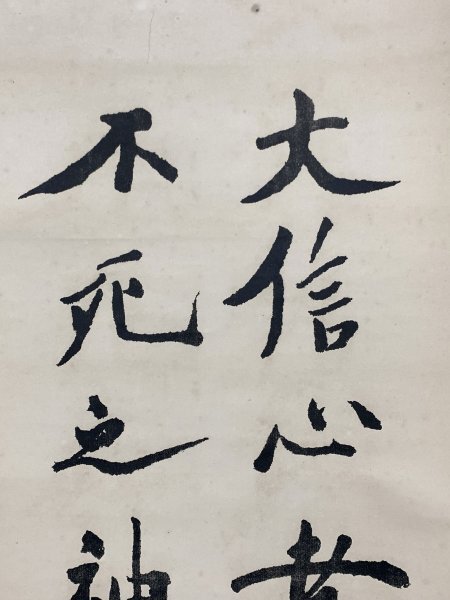 大信心者
不死之神